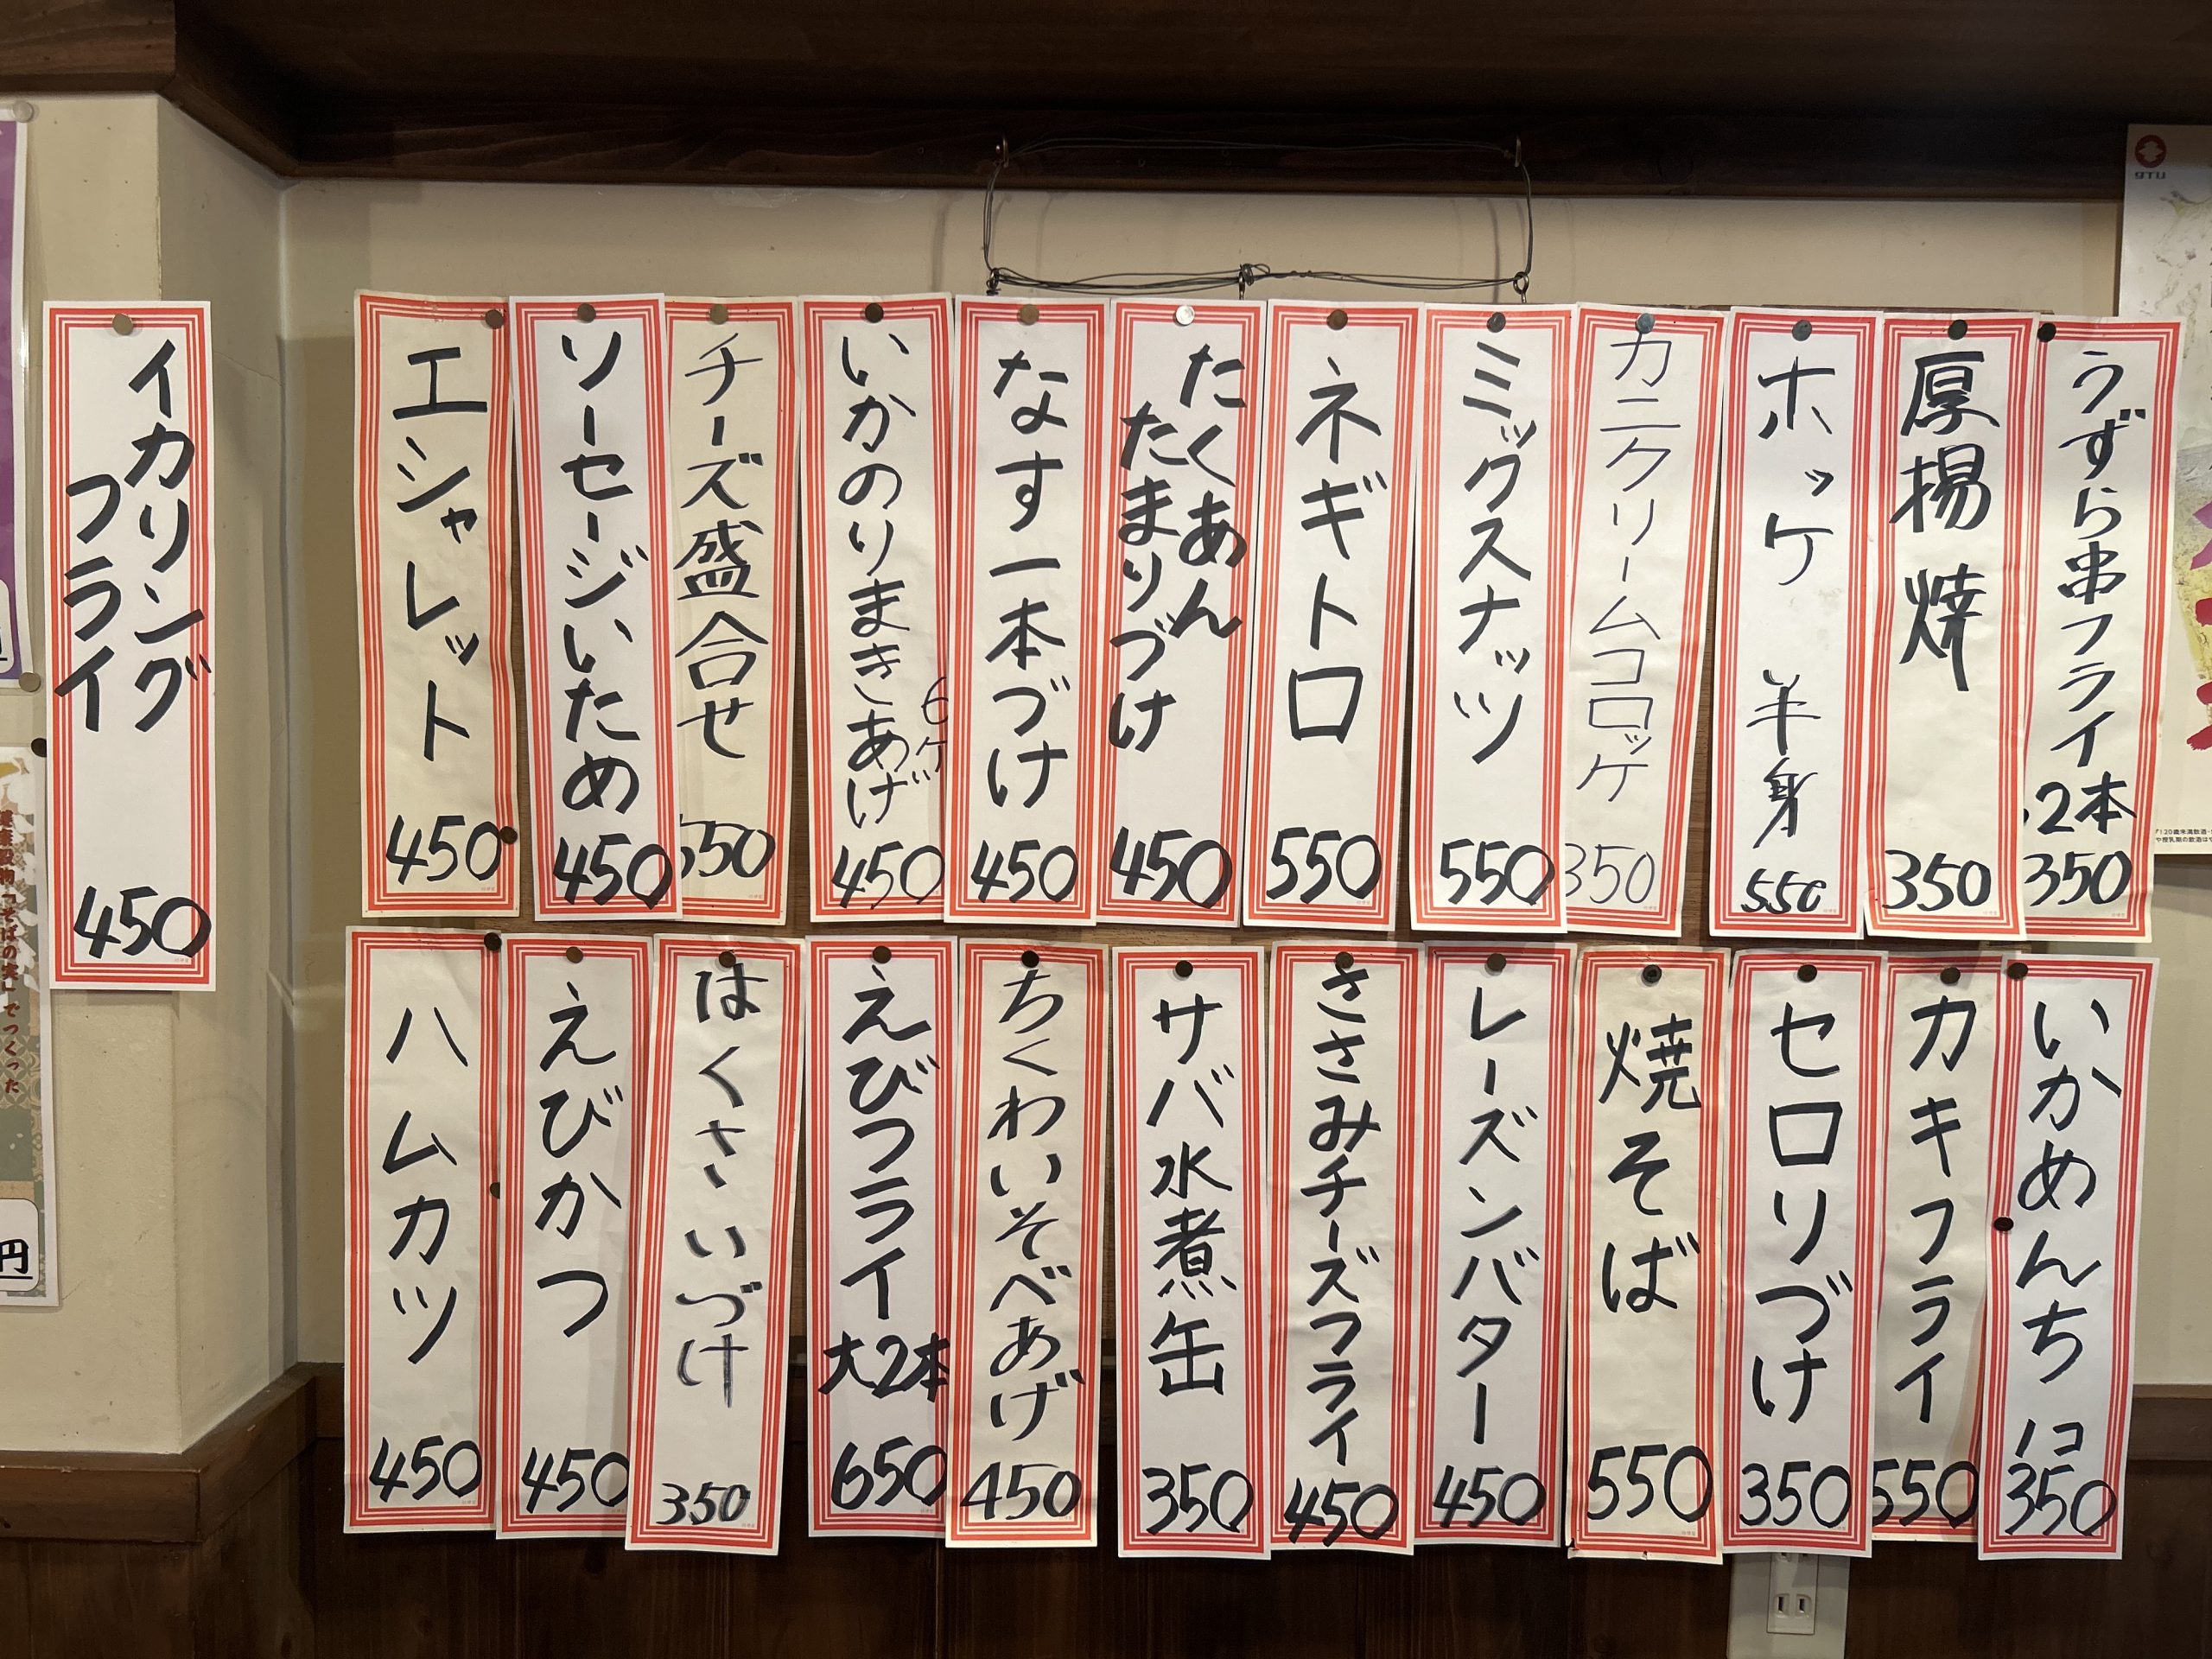 うずら串フライ
2本
350
厚揚焼
350
ホッケ 半身
550
カニクリームコロッケ
350
ミックスナッツ
550
ネギトロ
550
たくあん
たまりづけ
450
なす一本づけ
450
いかのりまきあげ
6ケ
450
チーズ盛合せ
550
ソーセージいため
450
エシャレット
450
イカリング
フライ
450
いかめんち
1コ
350
カキフライ
550
セロリづけ
350
焼そば
550
レーズンバター
450
ささみチーズフライ
450
サバ水煮缶
350
ちくわいそべあげ
450
えびフライ
大2本
650
はくさいづけ
350
えびかつ
450
ハムカツ
450
「そばの実」でつくった
円